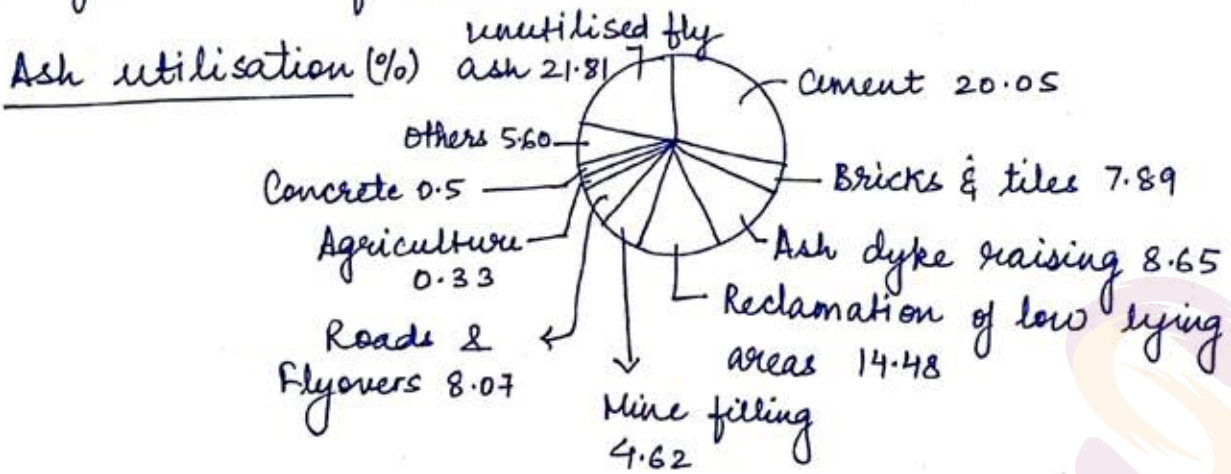 Ash utilisation (%)
unutilised fly
ash 21.81
Cement 20.05
Bricks & tiles 7.89
Ash dyke raising 8.65
Reclamation of low lying
areas 14.48
Mine filling
4.62
Roads &
Flyovers 8.07
Agriculture
0.33
Concrete 0.5
Others 5.60